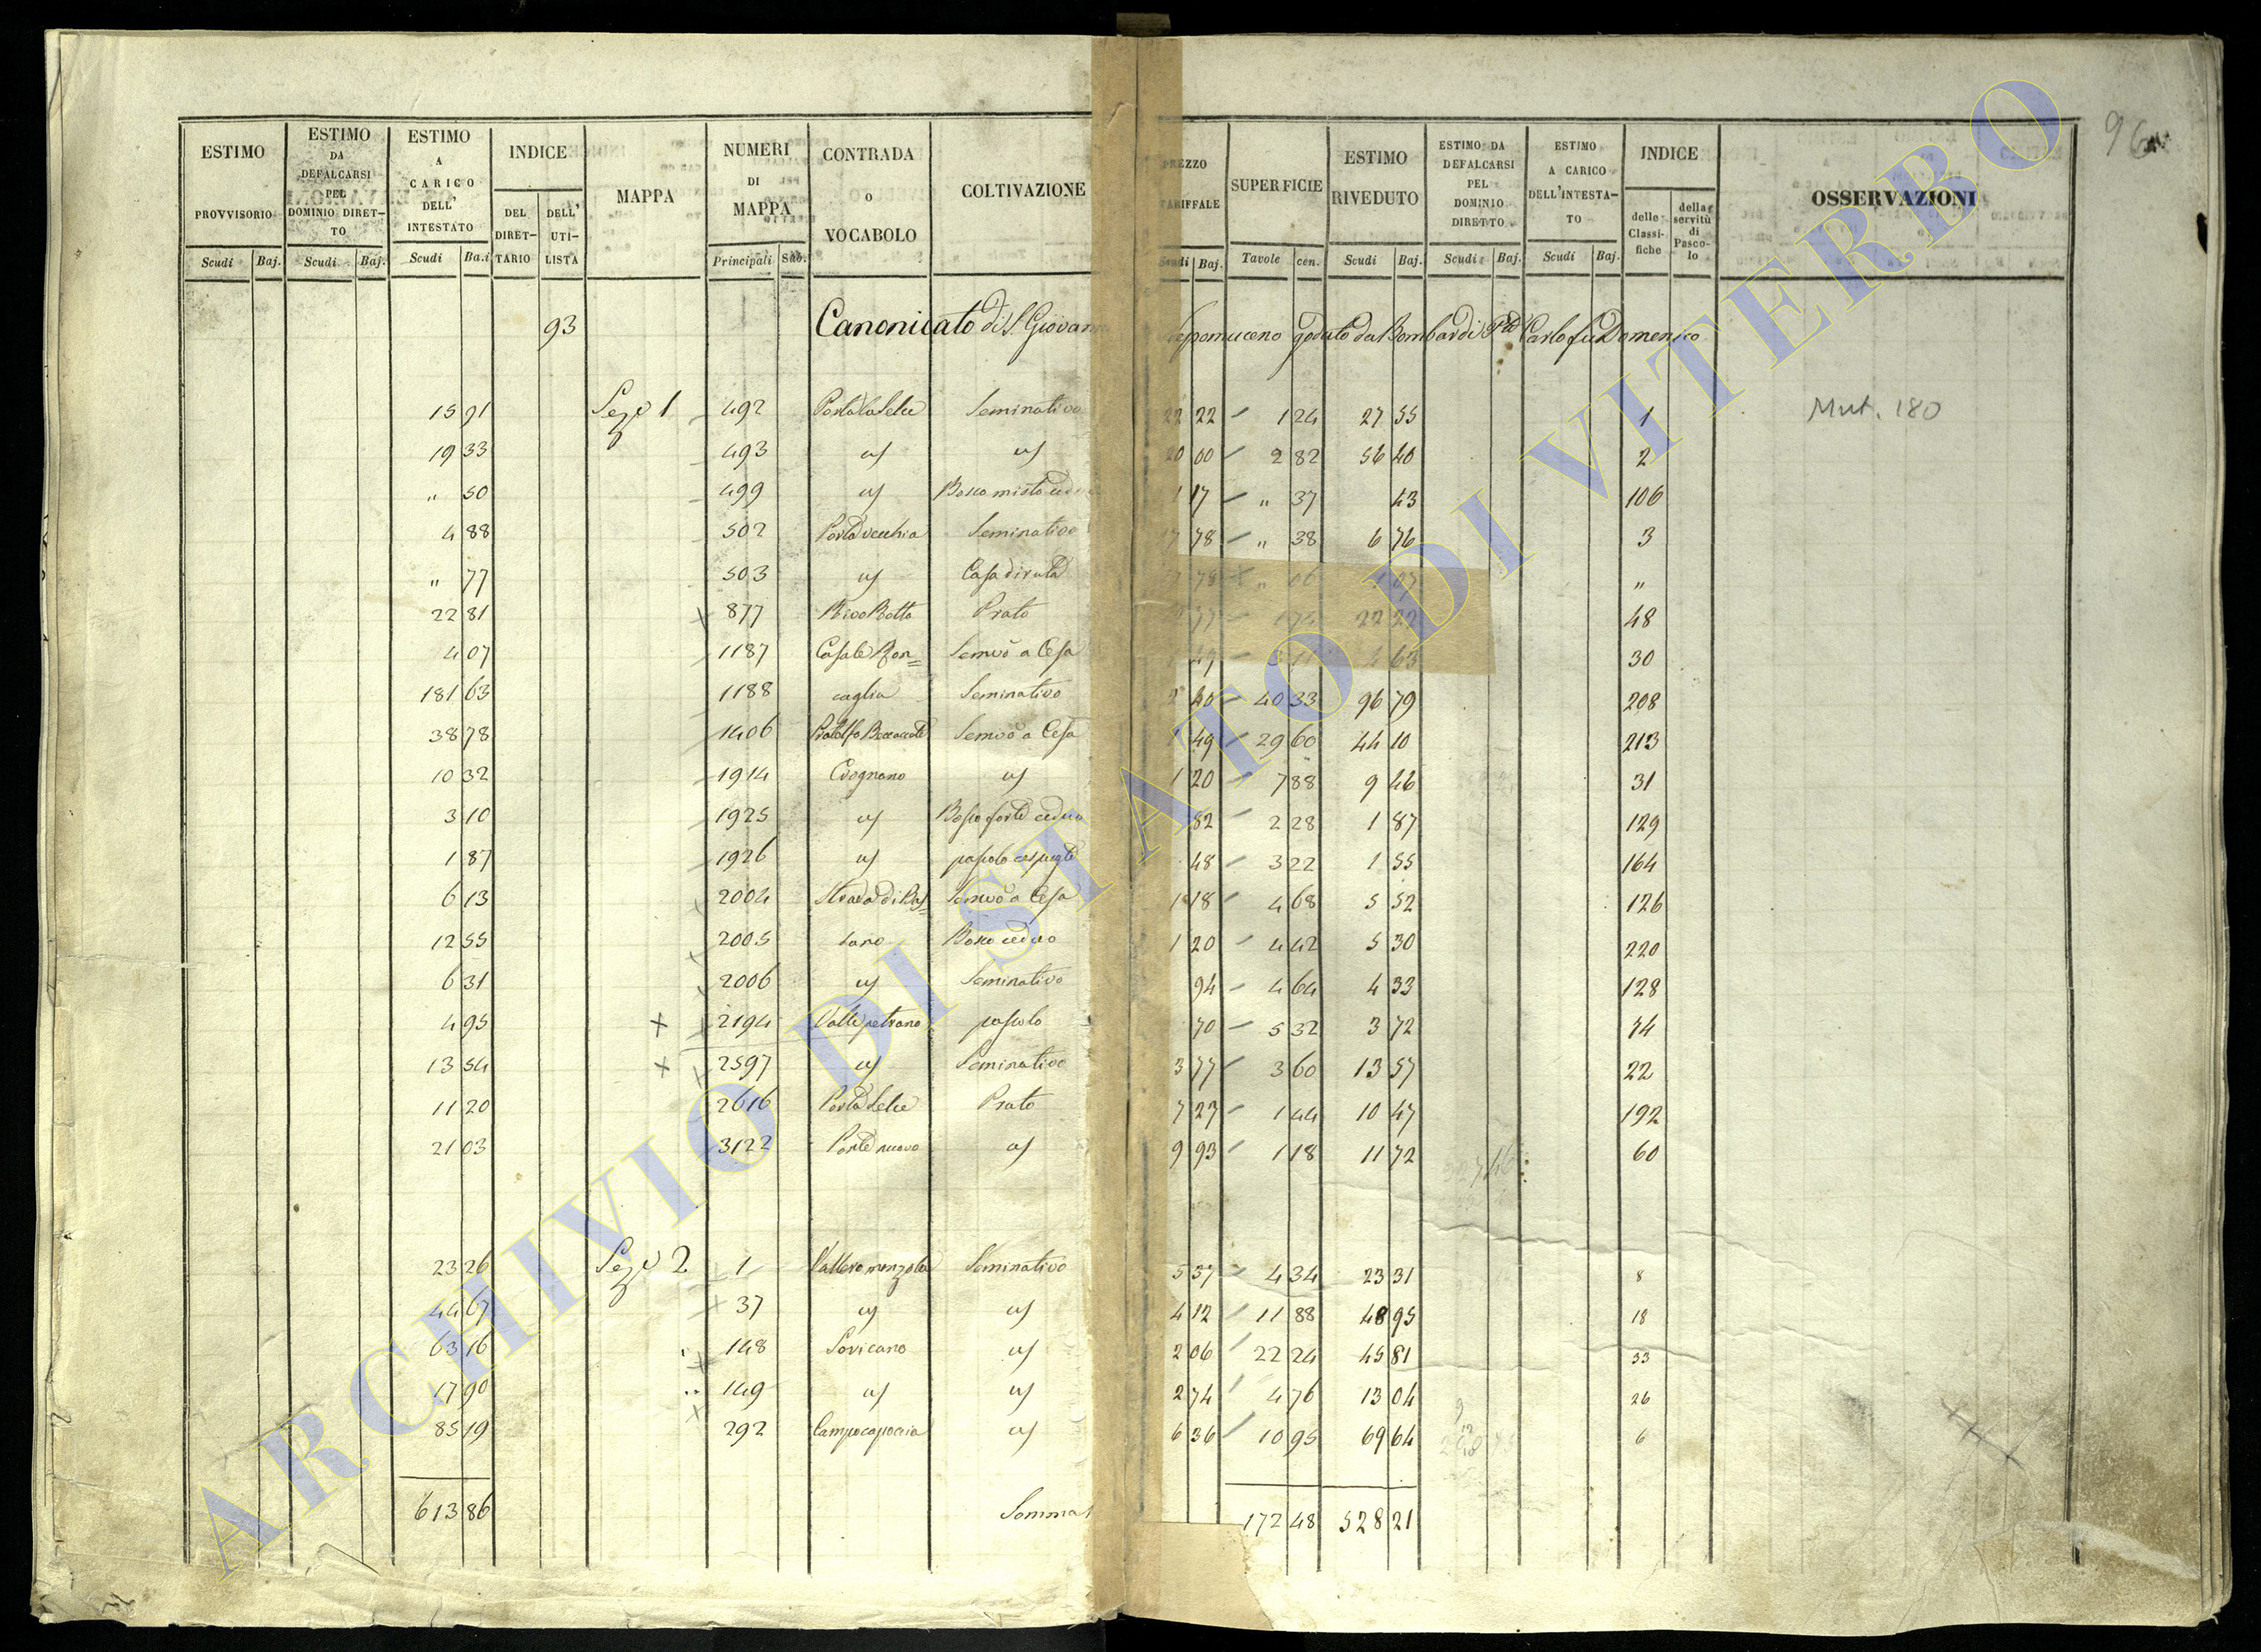 96
ESTIMO PROVVISORIO | ESTIMO DA DEFALCARSI PEL DOMINIO DIRET-TO | ESTIMO A CARICO DELL' INTESTATO | INDICE | MAPPA | NUMERI DI MAPPA | CONTRADA O VOCABOLO | COLTIVAZIONE | PREZZO TARIFFALE | SUPERFICIE | ESTIMO RIVEDUTO | ESTIMO DA DEFALCARSI PEL DOMINIO DIRETTO | ESTIMO A CARICO DELL'INTESTA-TO | INDICE | OSSERVAZIONI
Scudi | Baj. | Scudi | Baj. | Scudi | Ba.i | DEL DIRET-TARIO | DELL' UTI-LISTA | Principali | Sub. | Scudi | Baj. | Tavole | cen. | Scudi | Baj. | Scudi | Baj. | Scudi | Baj. | delle Classi-fiche | della servitù di Pasco-lo
93 Canonicato di S. Giovan Nepomuceno goduto da Bombardi Carlo fu Domenico
15 91 Sez. 1 492 Porta la Selce Seminativo 22 22 1 24 27 55 1 Mut. 180
19 33 493 " " 20 00 2 82 56 40 2
" 50 499 " Bosco misto ceduo 1 17 " 37 43 106
4 88 502 Porta vecchia Seminativo 17 78 " 38 6 76 3
" 77 503 " Casa diruta 78 " 06 1 07 "
22 81 877 Rivo Botto Prato 77 22 22 48
4 07 1187 Casale Ron= Semvo a Cesa 49 3 11 4 63 30
181 63 1188 caglia Seminativo 2 40 40 33 96 79 208
38 78 1406 Semvo a Cesa 1 49 29 60 44 10 213
10 32 1914 Crognano " 1 20 7 88 9 46 31
3 10 1925 " Bosco forte ceduo 82 2 28 1 87 129
1 87 1926 " pascolo cespugto 48 3 22 1 55 164
6 13 2004 Strada di Bas= Semvo a Cesa 1 18 4 68 5 52 126
12 55 2005 sano Bosco ceduo 1 20 4 42 5 30 220
6 31 2006 " Seminativo 94 4 64 4 33 128
4 95 2194 Valle petrano pascolo 70 5 32 3 72 74
13 54 2597 " Seminativo 3 77 3 60 13 57 22
11 20 2616 Porta Selce Prato 7 27 1 44 10 47 192
21 03 3122 Ponte nuovo " 9 93 1 18 11 72 60
23 26 Sez. 2 1 Valleromanzola Seminativo 5 37 4 34 23 31 8
44 67 37 " " 4 12 11 88 48 95 18
63 16 148 Sovicano " 2 06 22 24 45 81 33
17 90 149 " " 2 74 4 76 13 04 26
85 19 292 Campocapoccia " 6 36 10 95 69 64 6
613 86 Somma 172 48 528 21
ARCHIVIO DI STATO DI VITERBO